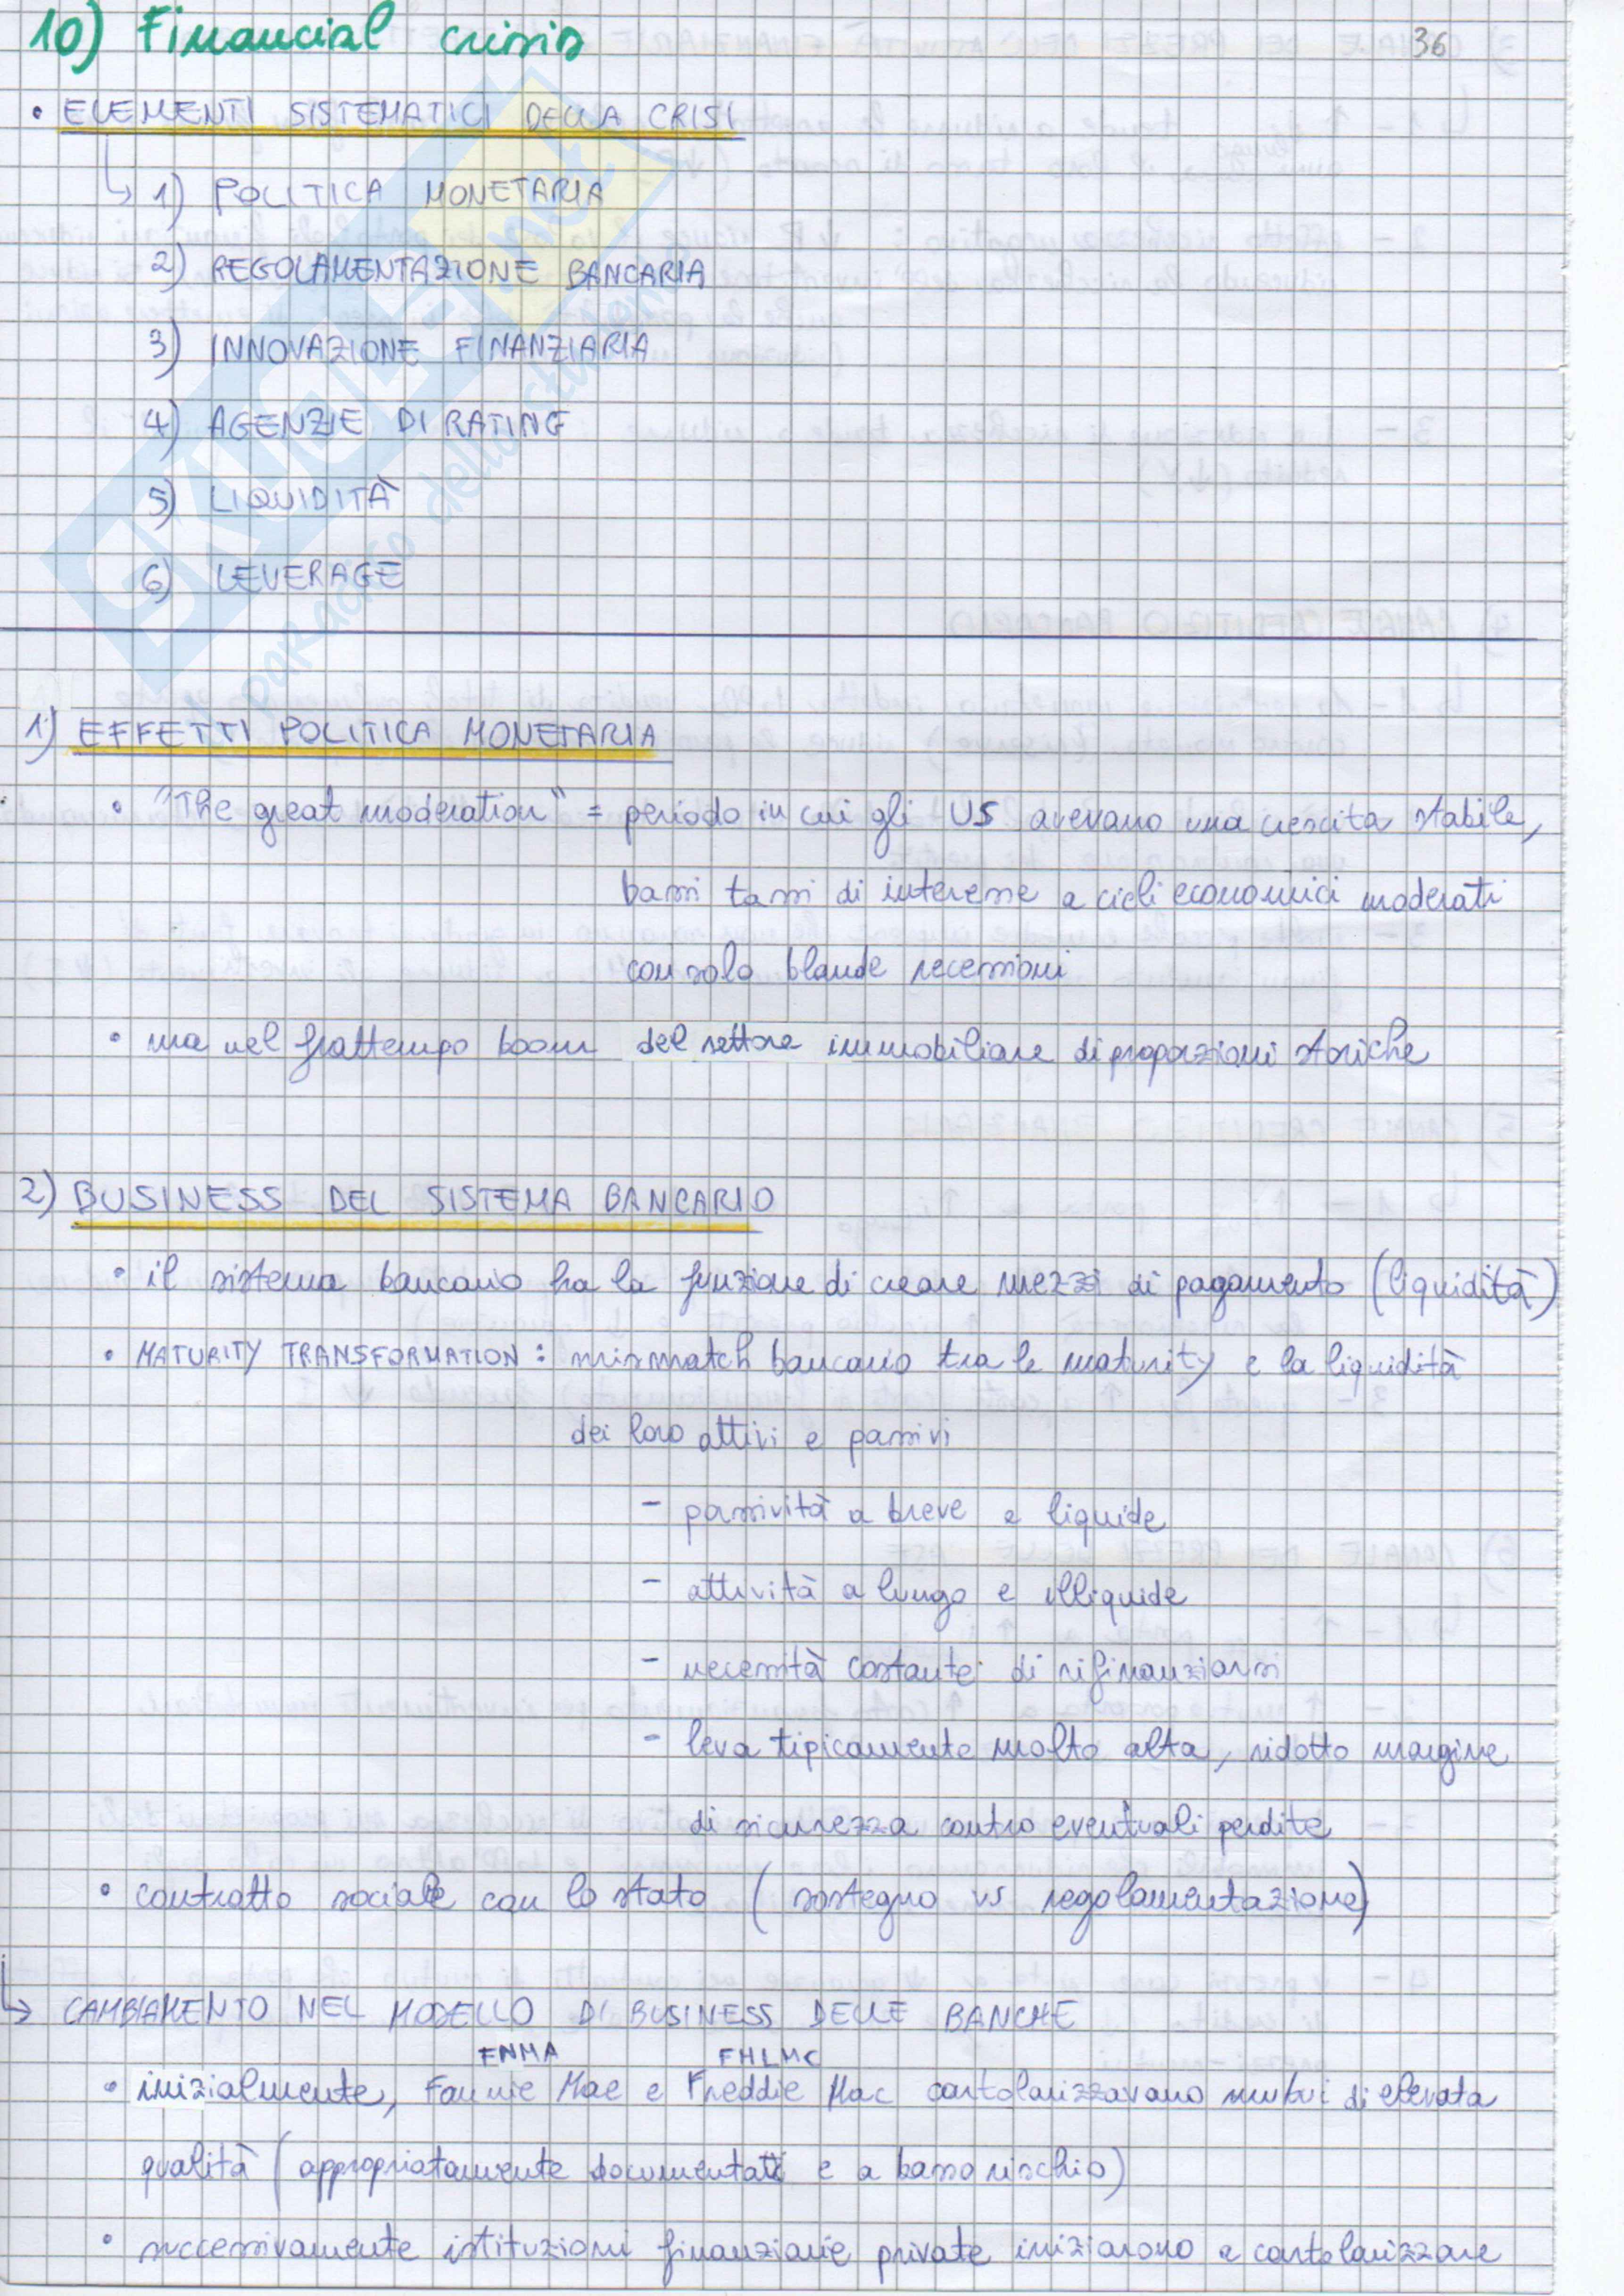 10) Financial crisis
36
• ELEMENTI SISTEMATICI DELLA CRISI
↳ 1) POLITICA MONETARIA
2) REGOLAMENTAZIONE BANCARIA
3) INNOVAZIONE FINANZIARIA
4) AGENZIE DI RATING
5) LIQUIDITÀ
6) LEVERAGE
1) EFFETTI POLITICA MONETARIA
• "The great moderation" = periodo in cui gli US avevano una crescita stabile,
bassi tassi di interesse e cicli economici moderati
con solo blande recessioni
• ma nel frattempo boom del settore immobiliare di proporzioni storiche
2) BUSINESS DEL SISTEMA BANCARIO
• il sistema bancario ha la funzione di creare mezzi di pagamento (liquidità)
• MATURITY TRANSFORMATION: mismatch bancario tra le maturity e la liquidità
dei loro attivi e passivi
- passività a breve e liquide
- attività a lungo e illiquide
- necessità costante di rifinanziarsi
- leva tipicamente molto alta, ridotto margine
di sicurezza contro eventuali perdite
• contratto sociale con lo stato (sostegno vs regolamentazione)
↳ CAMBIAMENTO NEL MODELLO DI BUSINESS DELLE BANCHE
FNMA FHLMC
• inizialmente, Fannie Mae e Freddie Mac cartolarizzavano mutui di elevata
qualità (appropriatamente documentati e a basso rischio)
• successivamente istituzioni finanziarie private iniziarono a cartolarizzare